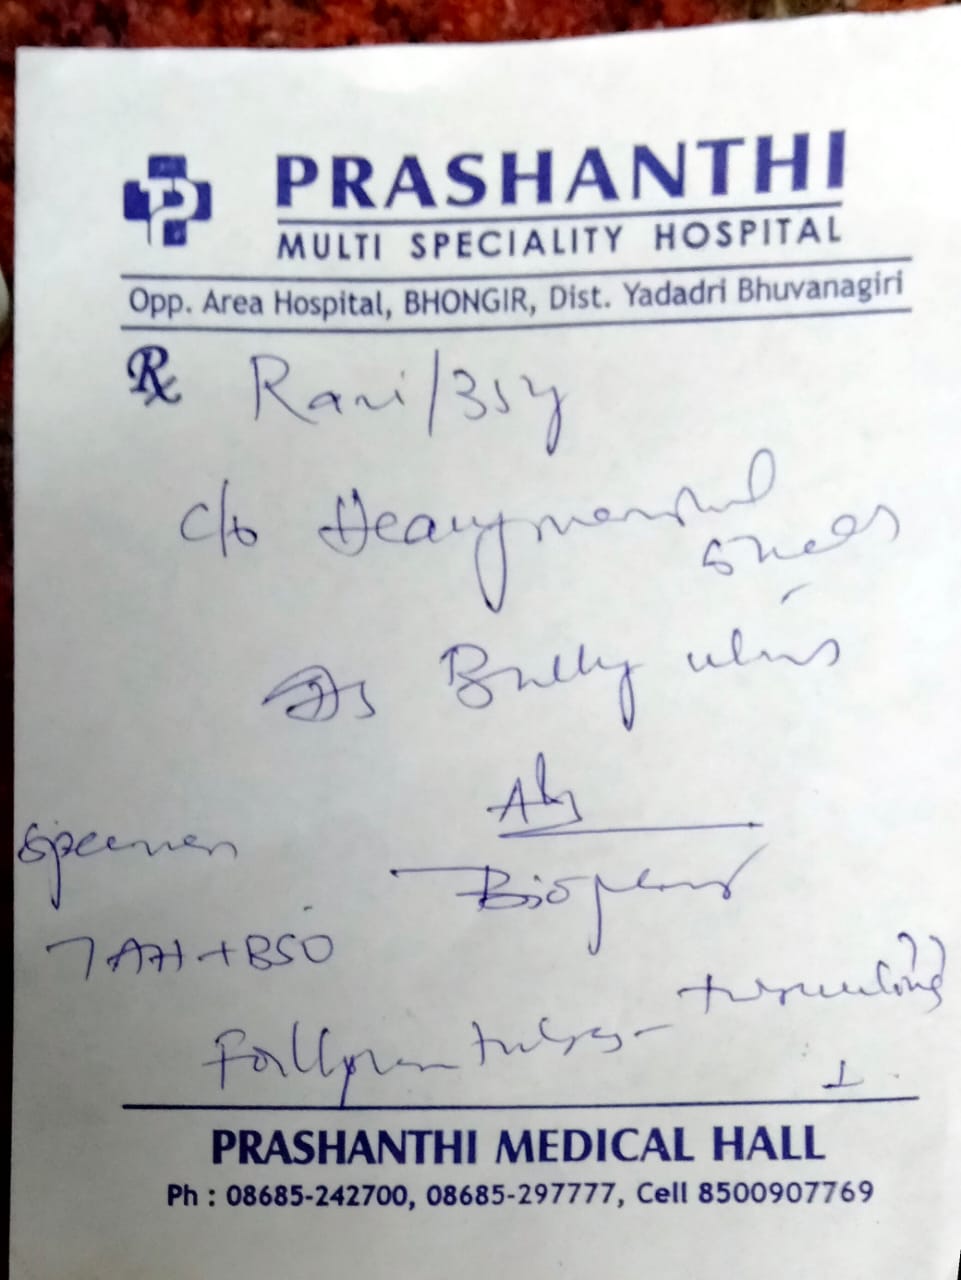 PRASHANTHI
MULTI SPECIALITY HOSPITAL
Opp. Area Hospital, BHONGIR, Dist. Yadadri Bhuvanagiri
Rx Rani/35y
c/o Heavy menstrual
Bulky uterus
Adv
Biopsy
Specimen
TAH+BSO
Fallopian tubes -
PRASHANTHI MEDICAL HALL
Ph : 08685-242700, 08685-297777, Cell 8500907769